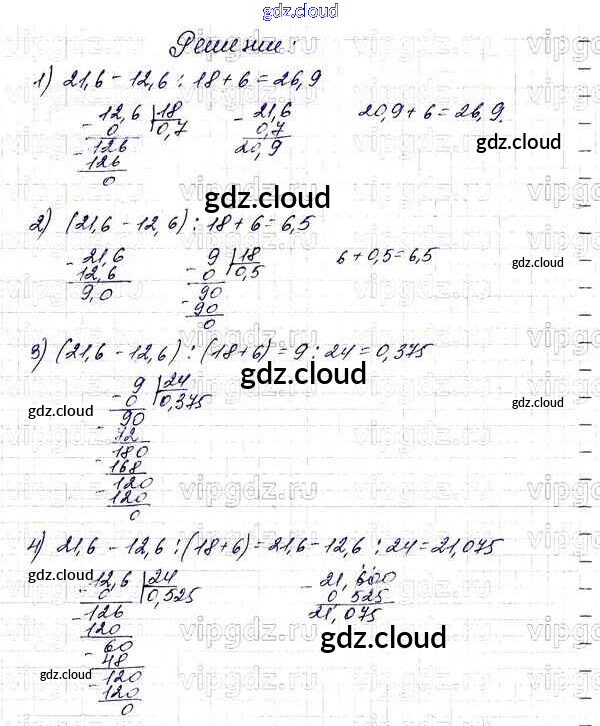 gdz.cloud
Решение:
1) 21,6 - 12,6 : 18 + 6 = 26,9
- 12,6 | 18 - 21,6 20,9 + 6 = 26,9.
0 | 0,7 0,7
- 126 20,9 gdz.cloud
126
0
gdz.cloud
2) (21,6 - 12,6) : 18 + 6 = 6,5
- 21,6 - 9 | 18 6 + 0,5 = 6,5
12,6 0 | 0,5 gdz.cloud
9,0 - 90
90
0
3) (21,6 - 12,6) : (18 + 6) = 9 : 24 = 0,375
gdz.cloud
- 9 | 24
gdz.cloud 0 | 0,375 gdz.cloud
- 90
72
- 180
168
- 120
120
0
vipgdz.ru
4) 21,6 - 12,6 : (18 + 6) = 21,6 - 12,6 : 24 = 21,075
gdz.cloud - 12,6 | 24 - 21,600 gdz.cloud
0 | 0,525 0 525
- 126 21,075
120
- 60 gdz.cloud
48
gdz.cloud - 120 gdz.cloud
120
0